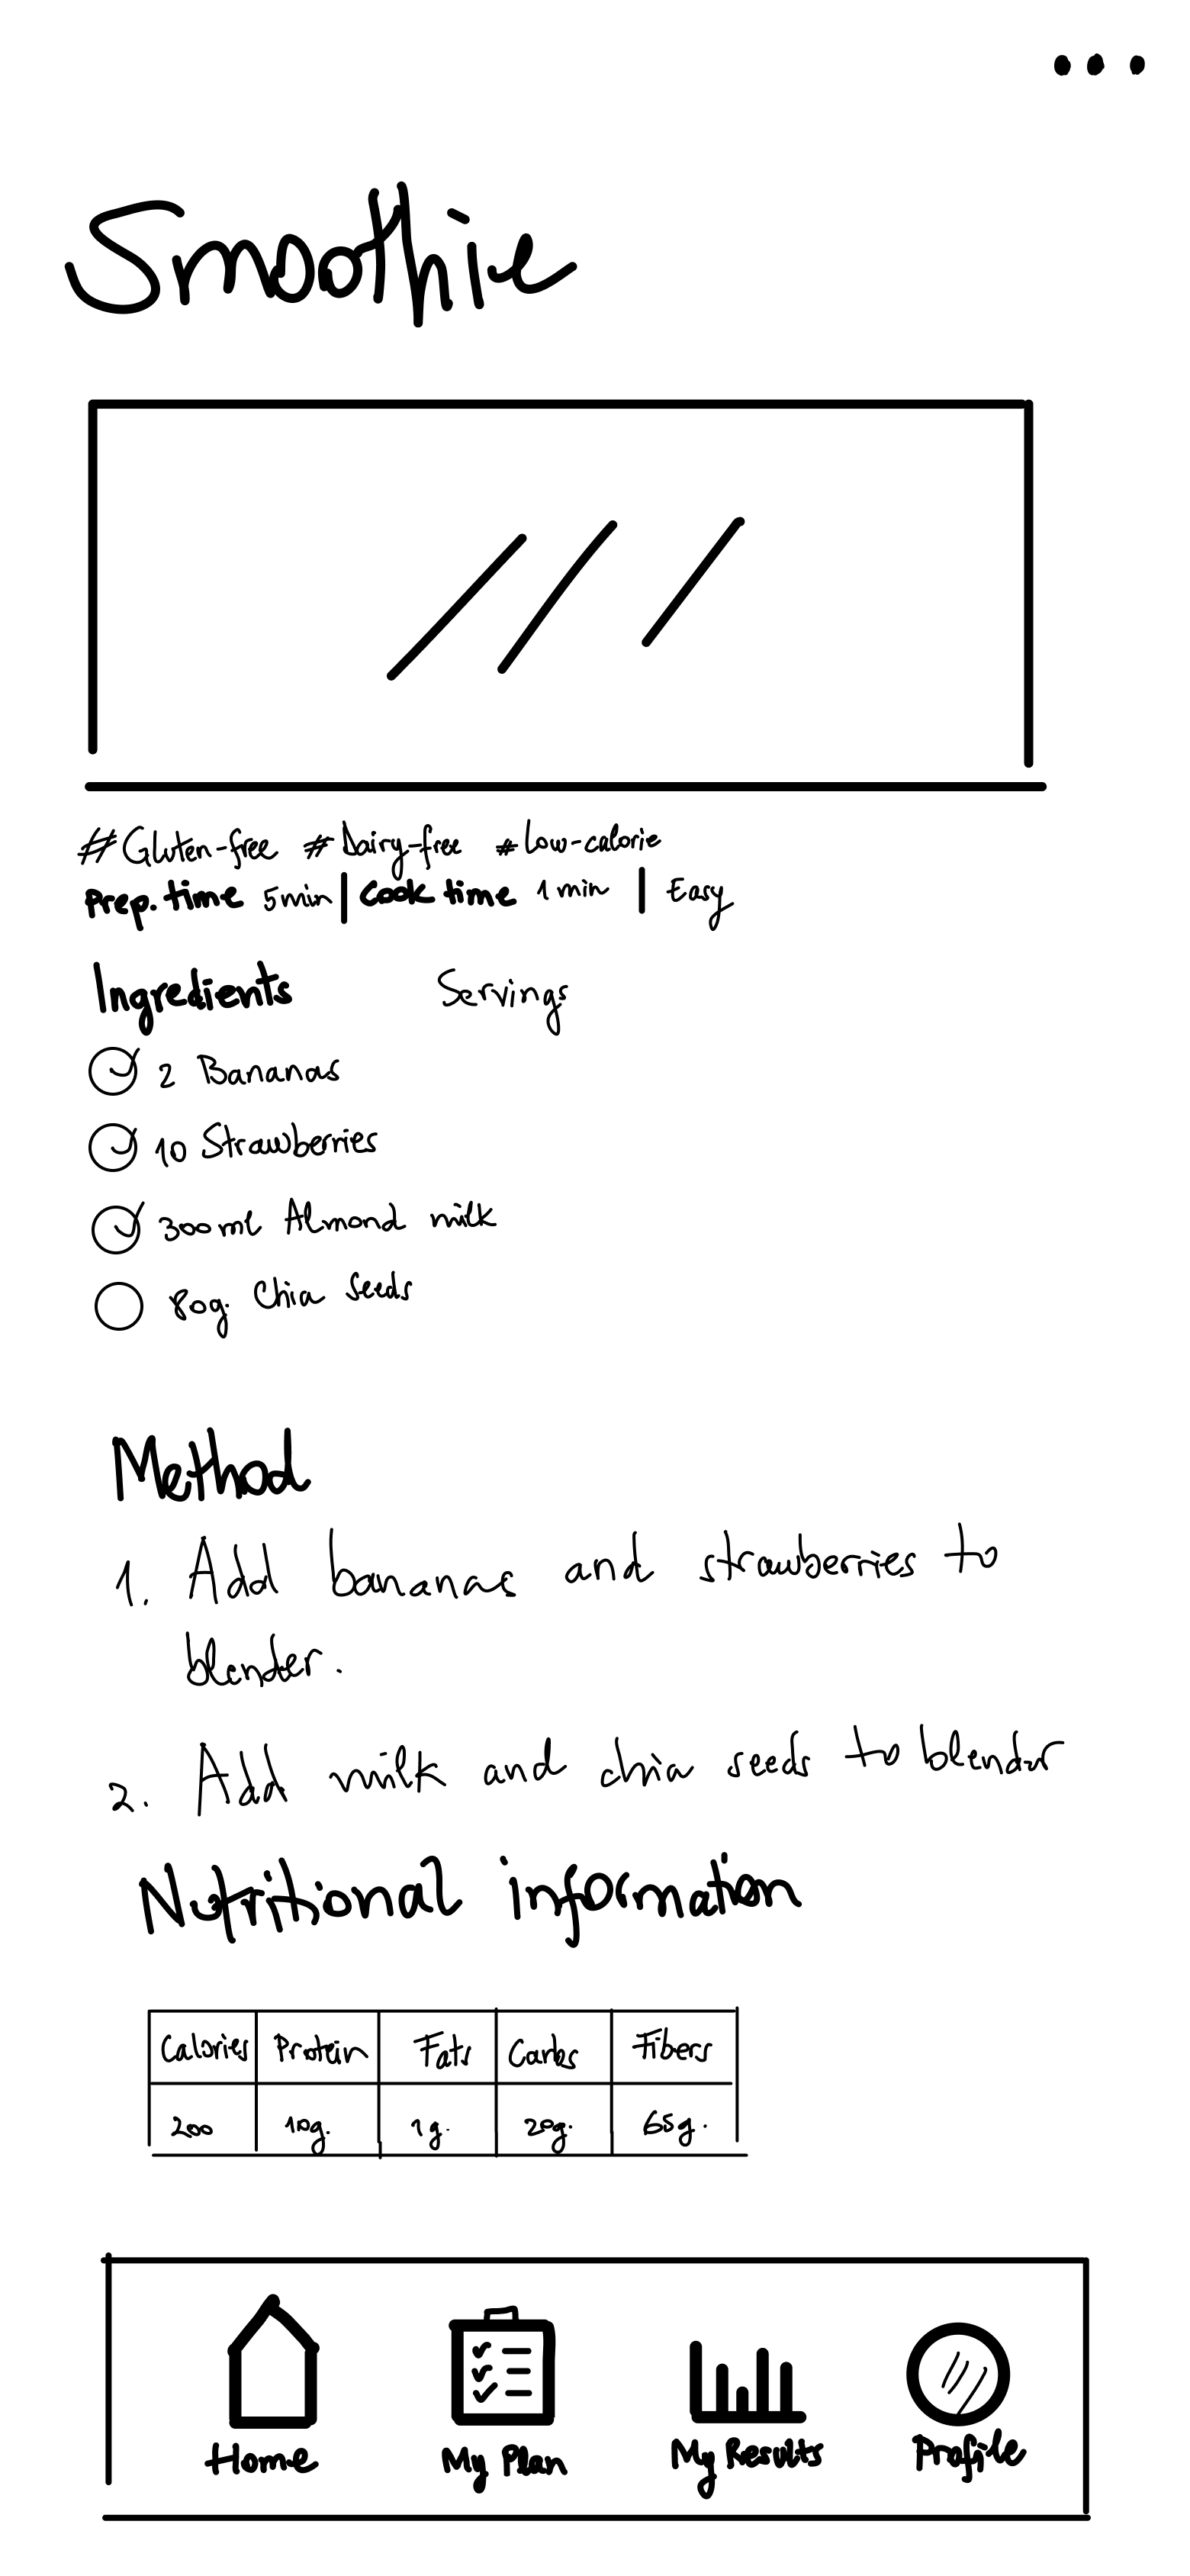 Smoothie
#Gluten-free #Dairy-free #Low-calorie
Prep. time 5 min | Cook time 1 min | Easy
Ingredients Servings
2 Bananas
10 Strawberries
300ml Almond milk
80g. Chia seeds
Method
1. Add bananas and strawberries to
blender.
2. Add milk and chia seeds to blender
Nutritional information
Calories Protein Fats Carbs Fibers
200 10g. 1g. 20g. 65g.
Home My Plan My Results Profile